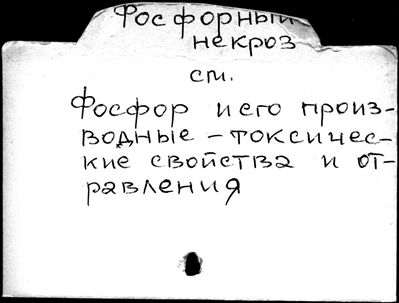 Фосфорный
некроз
см.
Фосфор и его произ-
водные - токсичес-
кие свойства и от-
равления